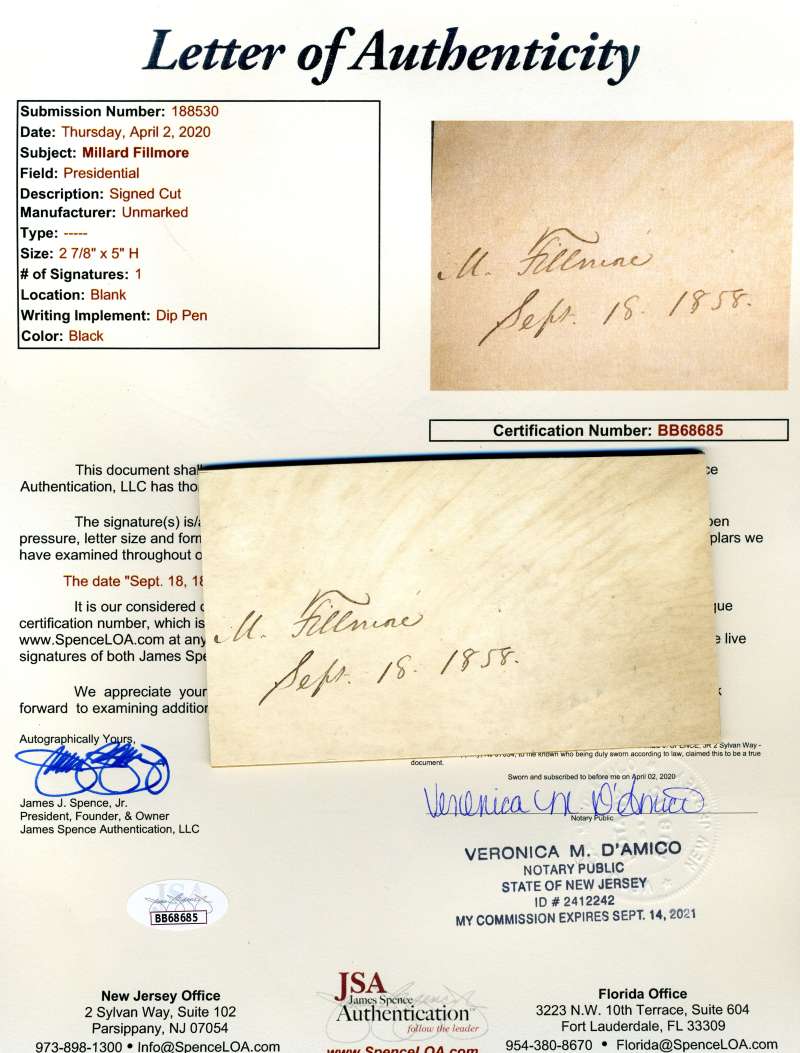 Letter of Authenticity
Submission Number: 188530
Date: Thursday, April 2, 2020
Subject: Millard Fillmore
Field: Presidential
Description: Signed Cut
Manufacturer: Unmarked
Type: -----
Size: 2 7/8" x 5" H
# of Signatures: 1
Location: Blank
Writing Implement: Dip Pen
Color: Black
M. Fillmore
Sept. 18. 1858.
Certification Number: BB68685
This document shal
Authentication, LLC has tho
The signature(s) is/
pressure, letter size and form
plars we
have examined throughout
The date "Sept. 18, 18
It is our considered
que
certification number, which is
www.SpenceLOA.com at any
live
signatures of both James Spe
We appreciate your
forward to examining addition
M. Fillmore
Sept. 18. 1858.
Autographically Yours,
James J. Spence, Jr.
President, Founder, & Owner
James Spence Authentication, LLC
to me known who being duly sworn according to law, claimed this to be a true
document.
Sworn and subscribed to before me on April 02, 2020
Veronica M. D'Amico
Notary Public
VERONICA M. D'AMICO
NOTARY PUBLIC
STATE OF NEW JERSEY
ID # 2412242
MY COMMISSION EXPIRES SEPT. 14, 2021
JSA
BB68685
New Jersey Office
2 Sylvan Way, Suite 102
Parsippany, NJ 07054
973-898-1300 • Info@SpenceLOA.com
JSA
James Spence
Authentication
follow the leader
www.SpenceLOA.com
Florida Office
3223 N.W. 10th Terrace, Suite 604
Fort Lauderdale, FL 33309
954-380-8670 • Florida@SpenceLOA.com